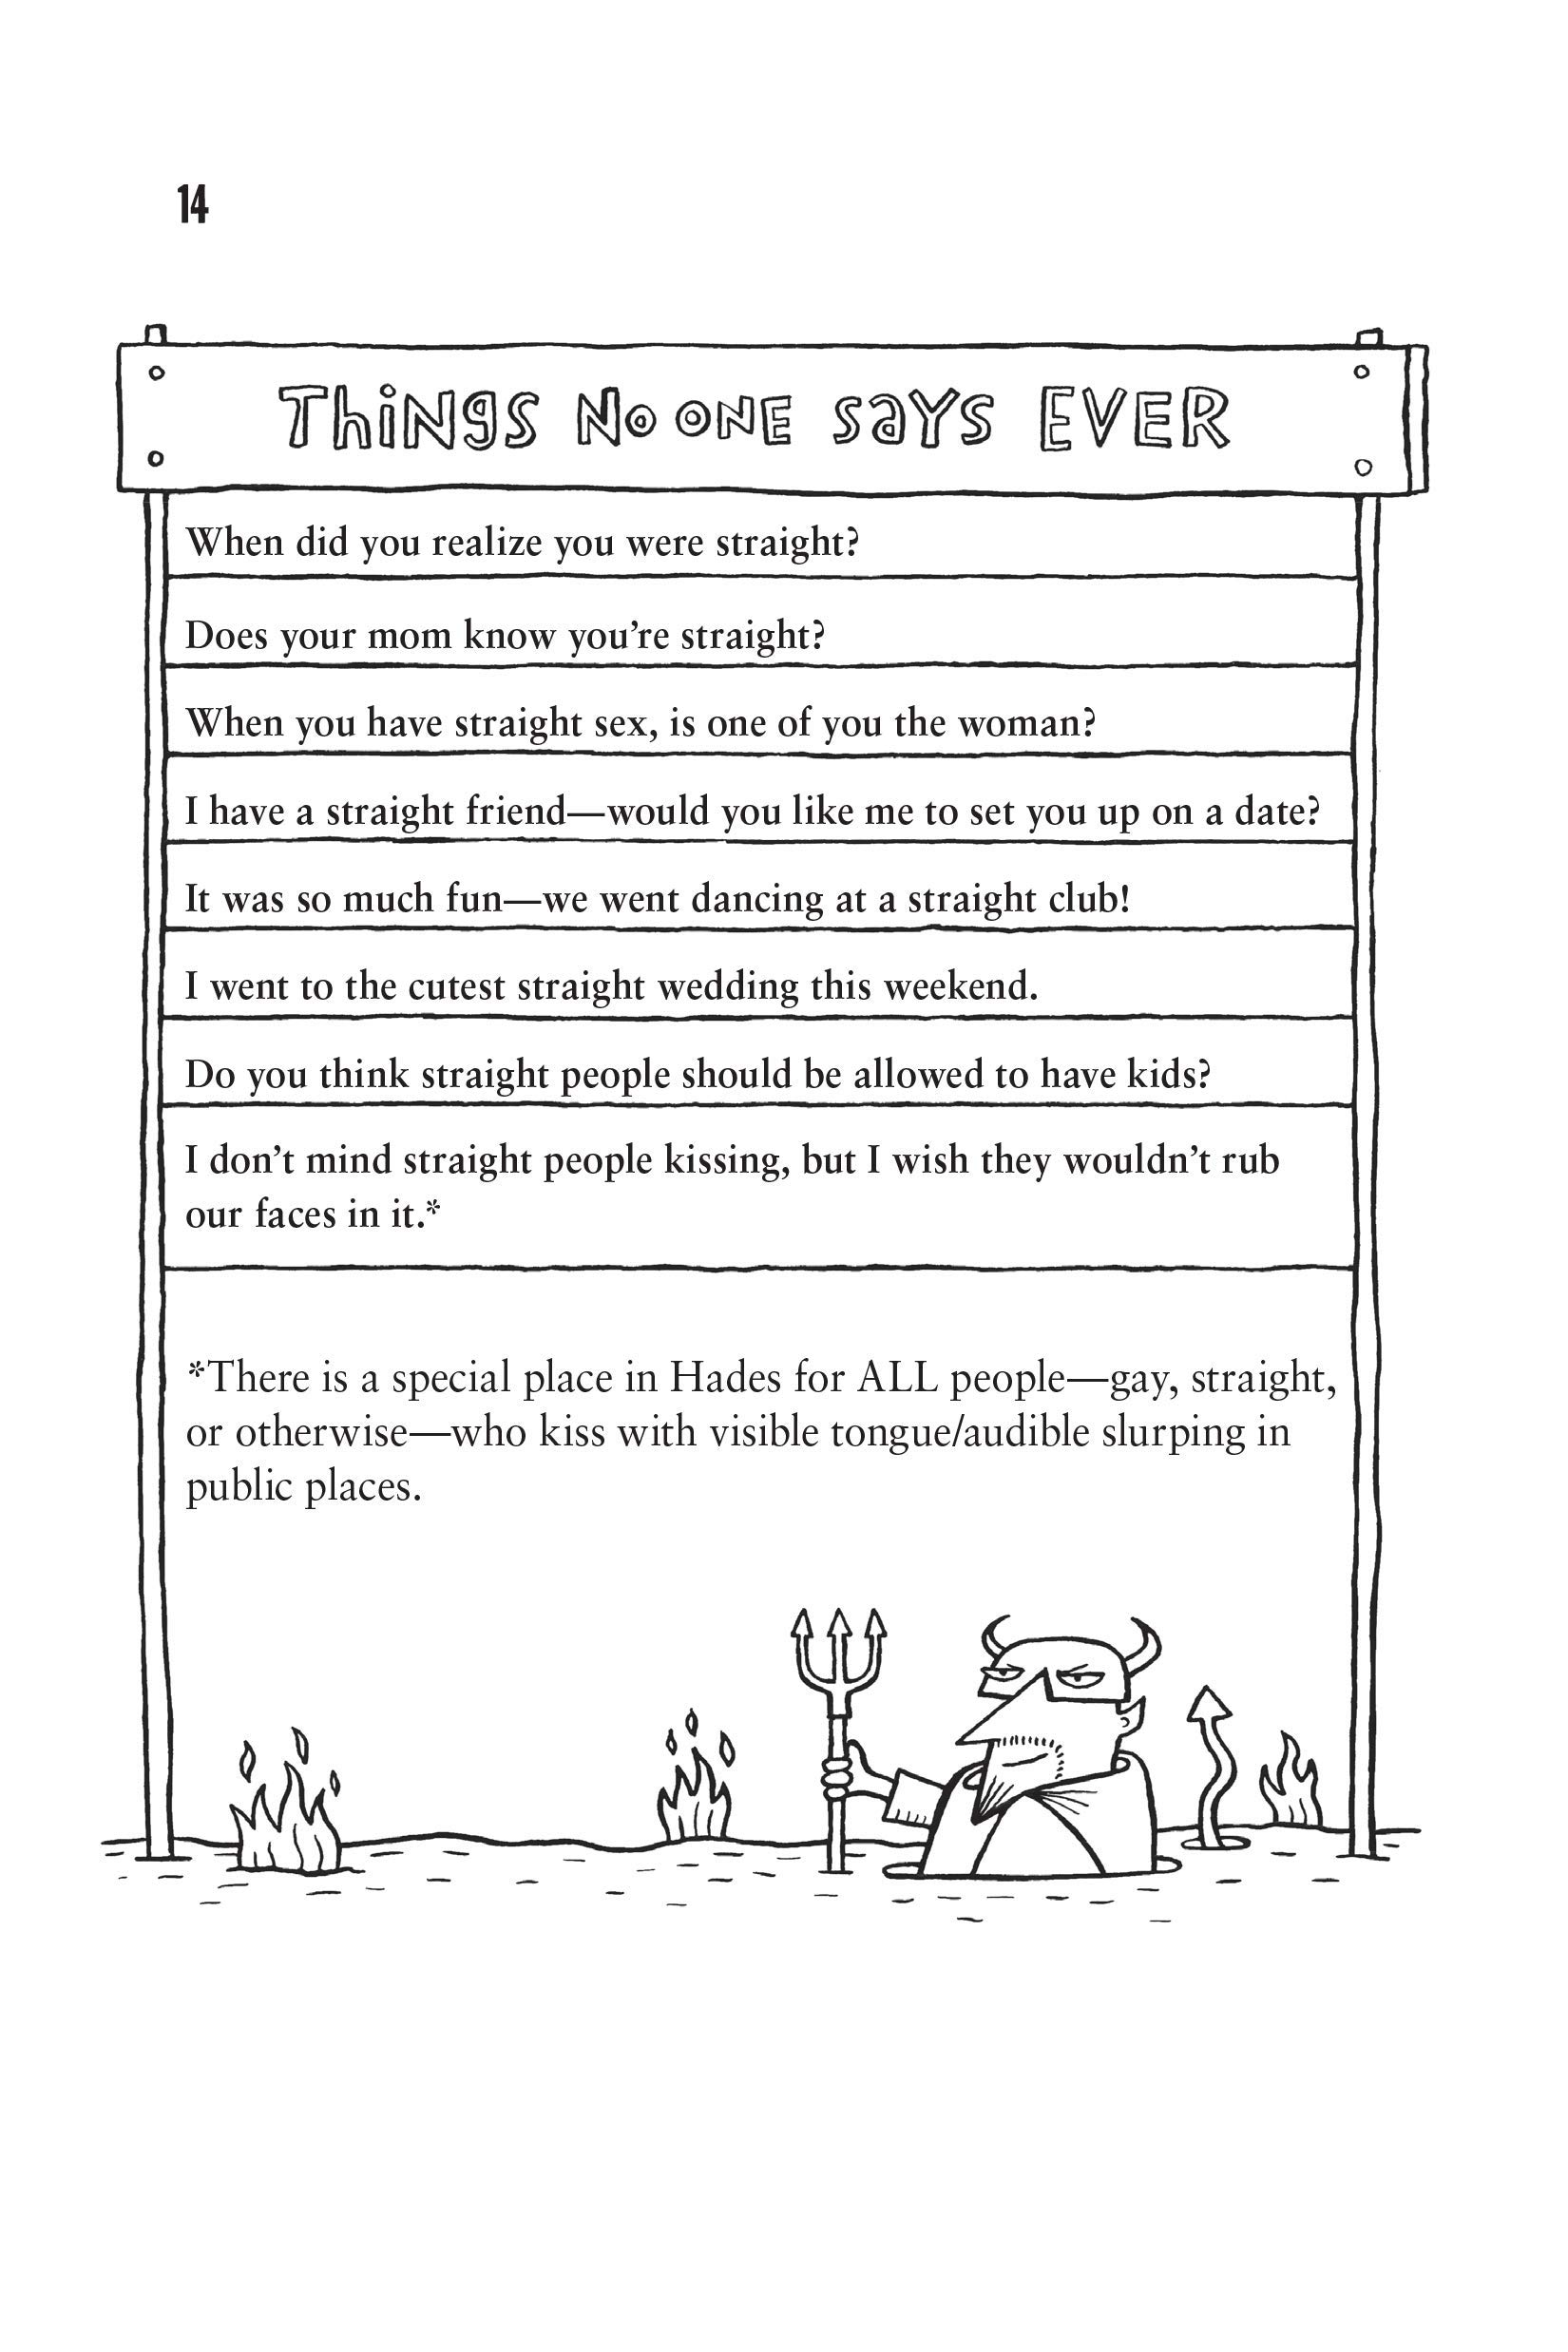 14
Things No one says EVER
When did you realize you were straight?
Does your mom know you’re straight?
When you have straight sex, is one of you the woman?
I have a straight friend—would you like me to set you up on a date?
It was so much fun—we went dancing at a straight club!
I went to the cutest straight wedding this weekend.
Do you think straight people should be allowed to have kids?
I don’t mind straight people kissing, but I wish they wouldn’t rub
our faces in it.*
*There is a special place in Hades for ALL people—gay, straight,
or otherwise—who kiss with visible tongue/audible slurping in
public places.